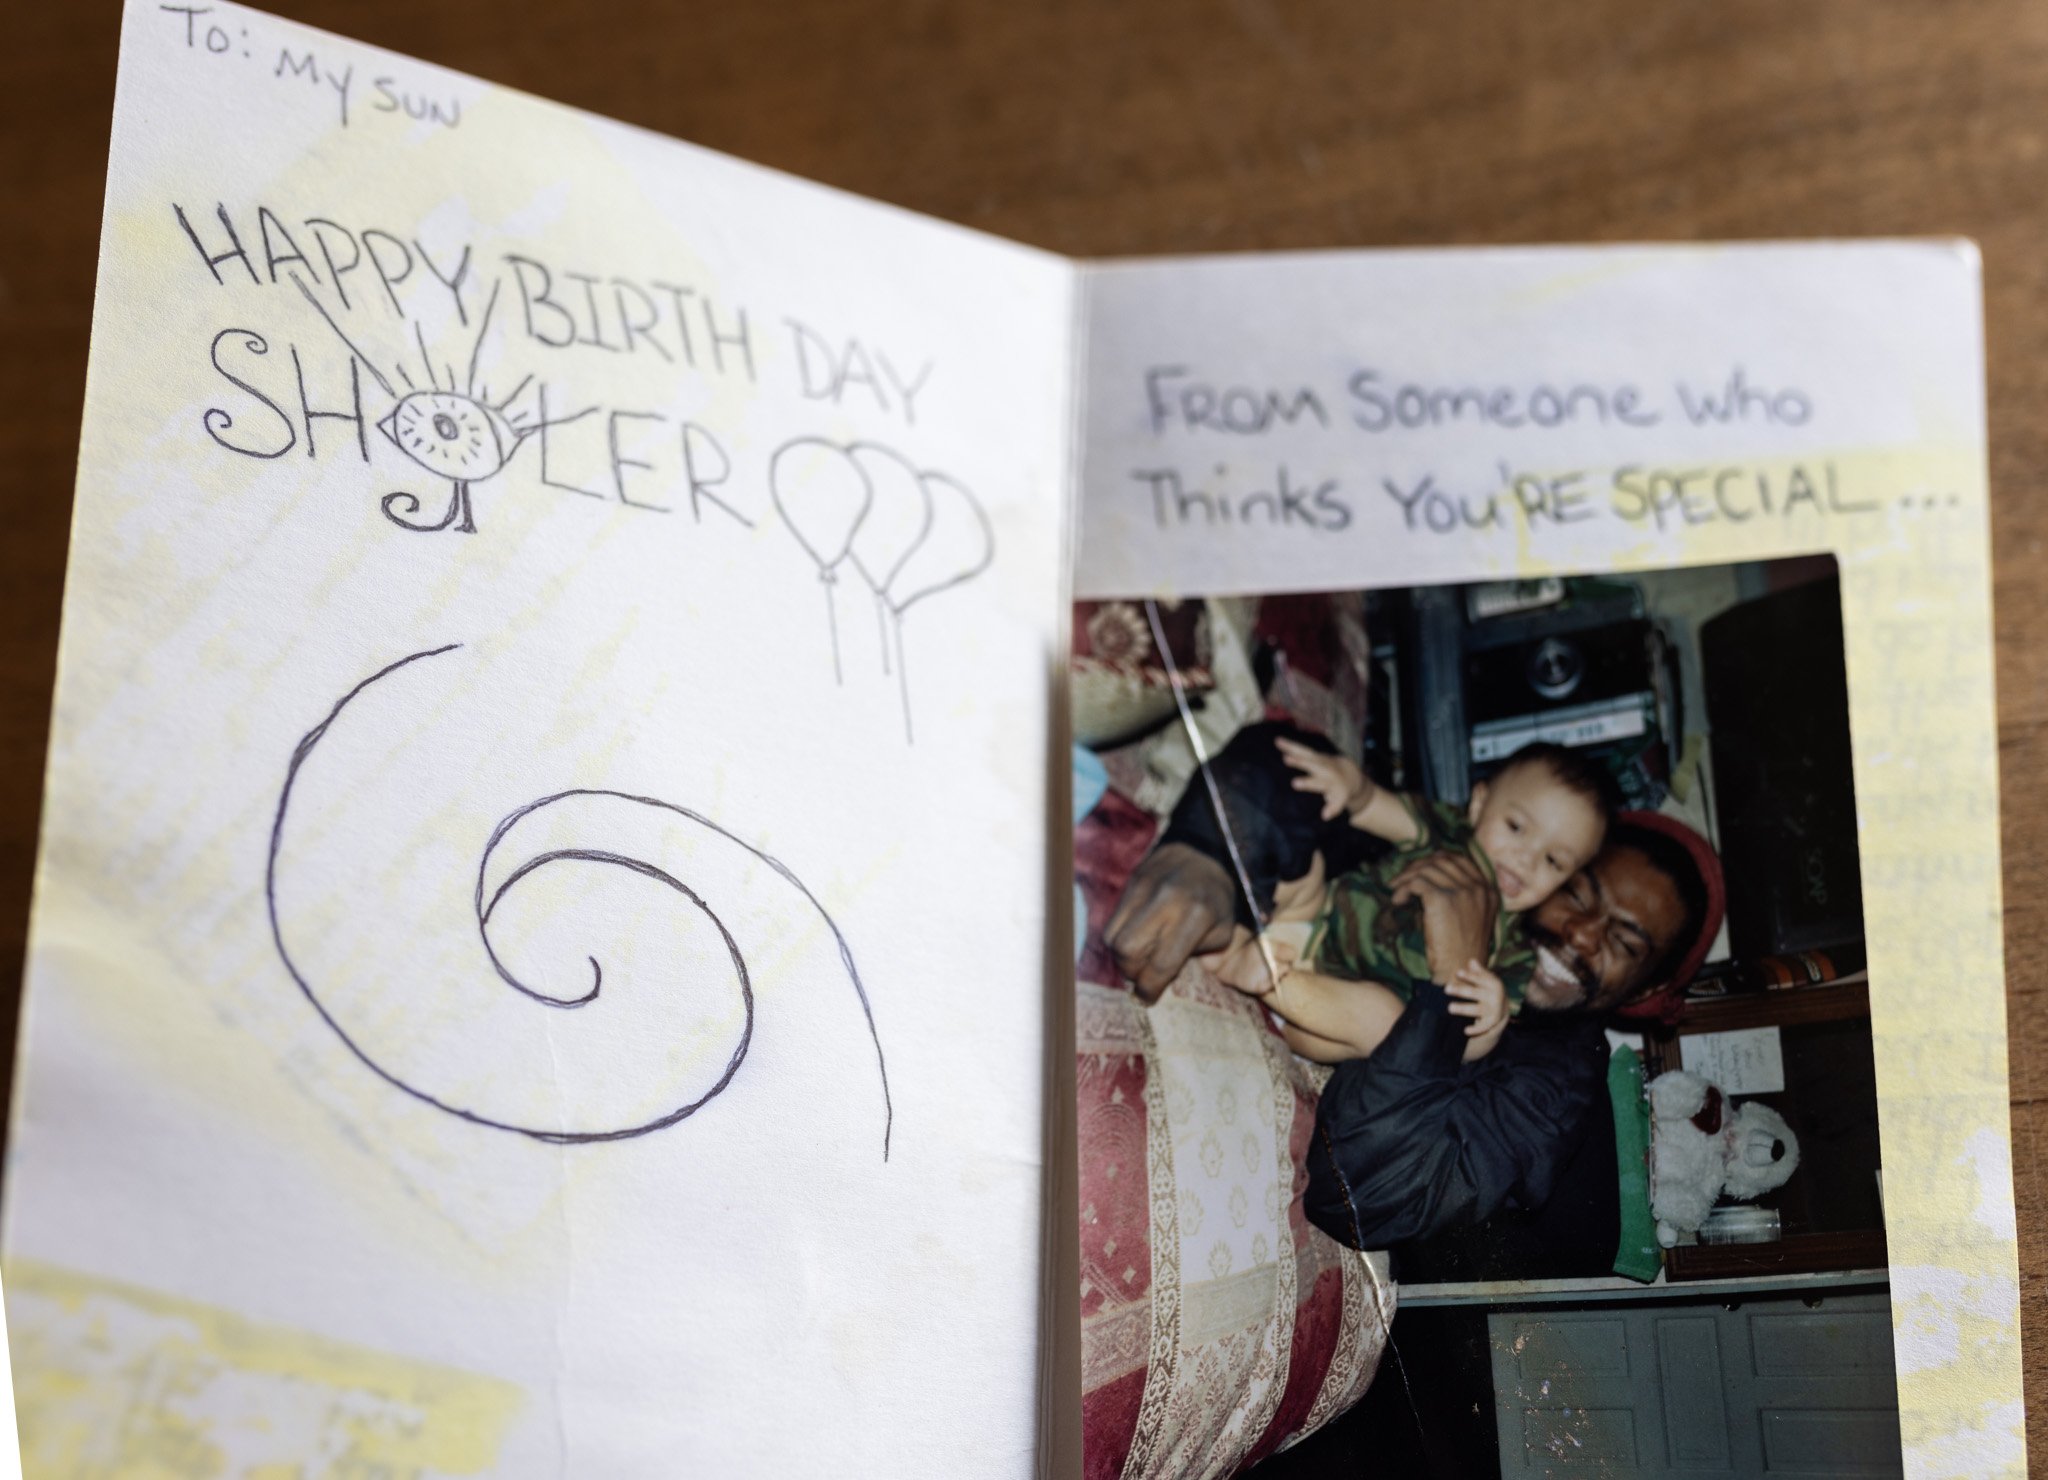 To: My SUN
HAPPY BIRTH DAY
SHYLER
FROM Someone who
Thinks You'RE SPECIAL...